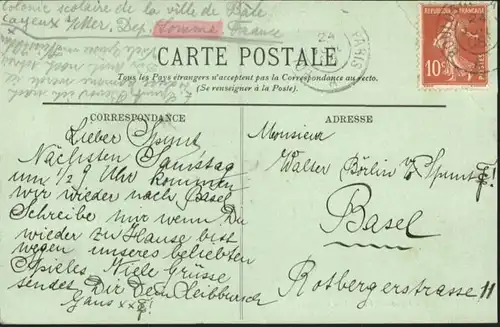 Colonie scolaire de la ville de Bâle.
Cayeux s/Mer. Dep. Somme. France
CARTE POSTALE
Tous les Pays étrangers n'acceptent pas la Correspondance au recto.
(Se renseigner à la Poste).
PARIS
10
CORRESPONDANCE
Lieber Spunt
Nächsten Samstag
um 1/2 9 Uhr kommen
wir wieder nach Basel
Schreibe nur wenn Du
wieder zu Hause bist
wegen unseres beliebten
Spieles. Viele Grüsse
sendet Dir Dein Leibbursch
Gans xx
ADRESSE
Monsieur
Walter Börlin v/o Spunt
Basel
Rotbergerstrasse 11